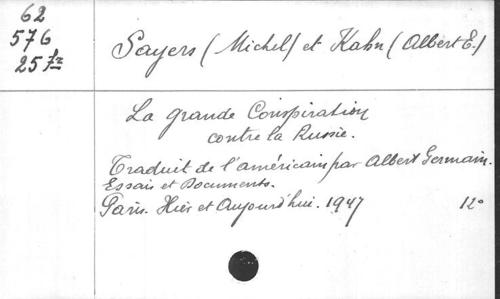 62
576
25 fr
Sayers (Michel) et Kahn (Albert E.)
La grande Conspiration
contre la Russie.
Traduit de l'américain par Albert Germain.
Essais et Documents.
Paris. Hier et Aujourd'hui. 1947 12°